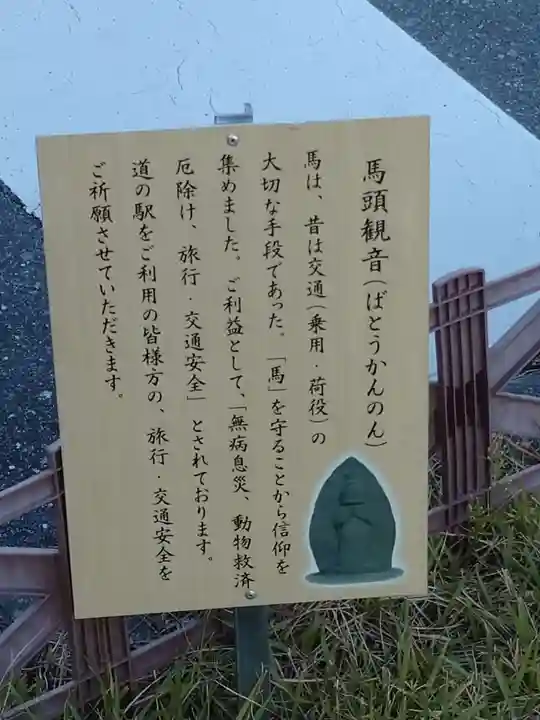 馬頭観音(ばとうかんのん)
馬は、昔は交通(乗用・荷役)の
大切な手段であった。「馬」を守ることから信仰を
集めました。ご利益として、「無病息災、動物救済
厄除け、旅行・交通安全」とされております。
道の駅をご利用の皆様方の、旅行・交通安全を
ご祈願させていただきます。